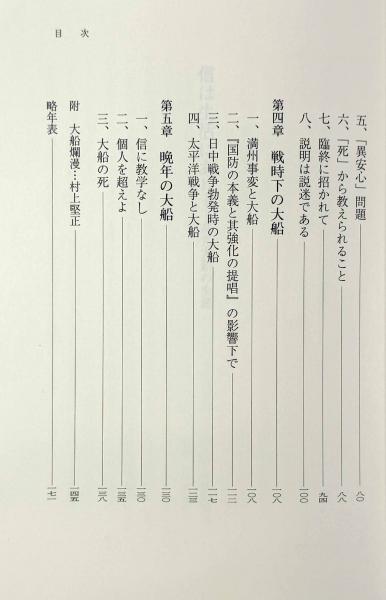 目次
五、「異安心」問題 八〇
六、「死」から教えられること 八八
七、臨終に招かれて 九四
八、説明は説迷である 一〇〇
第四章 戦時下の大船 一〇八
一、満州事変と大船 一〇八
二、『国防の本義と其強化の提唱』の影響下で 一一二
三、日中戦争勃発時の大船 一一七
四、太平洋戦争と大船 一二三
第五章 晩年の大船 一三〇
一、信に教学なし 一三〇
二、個人を超えよ 一三五
三、大船の死 一三八
附 大船爛漫…村上堅正 一四五
略年表 一七一